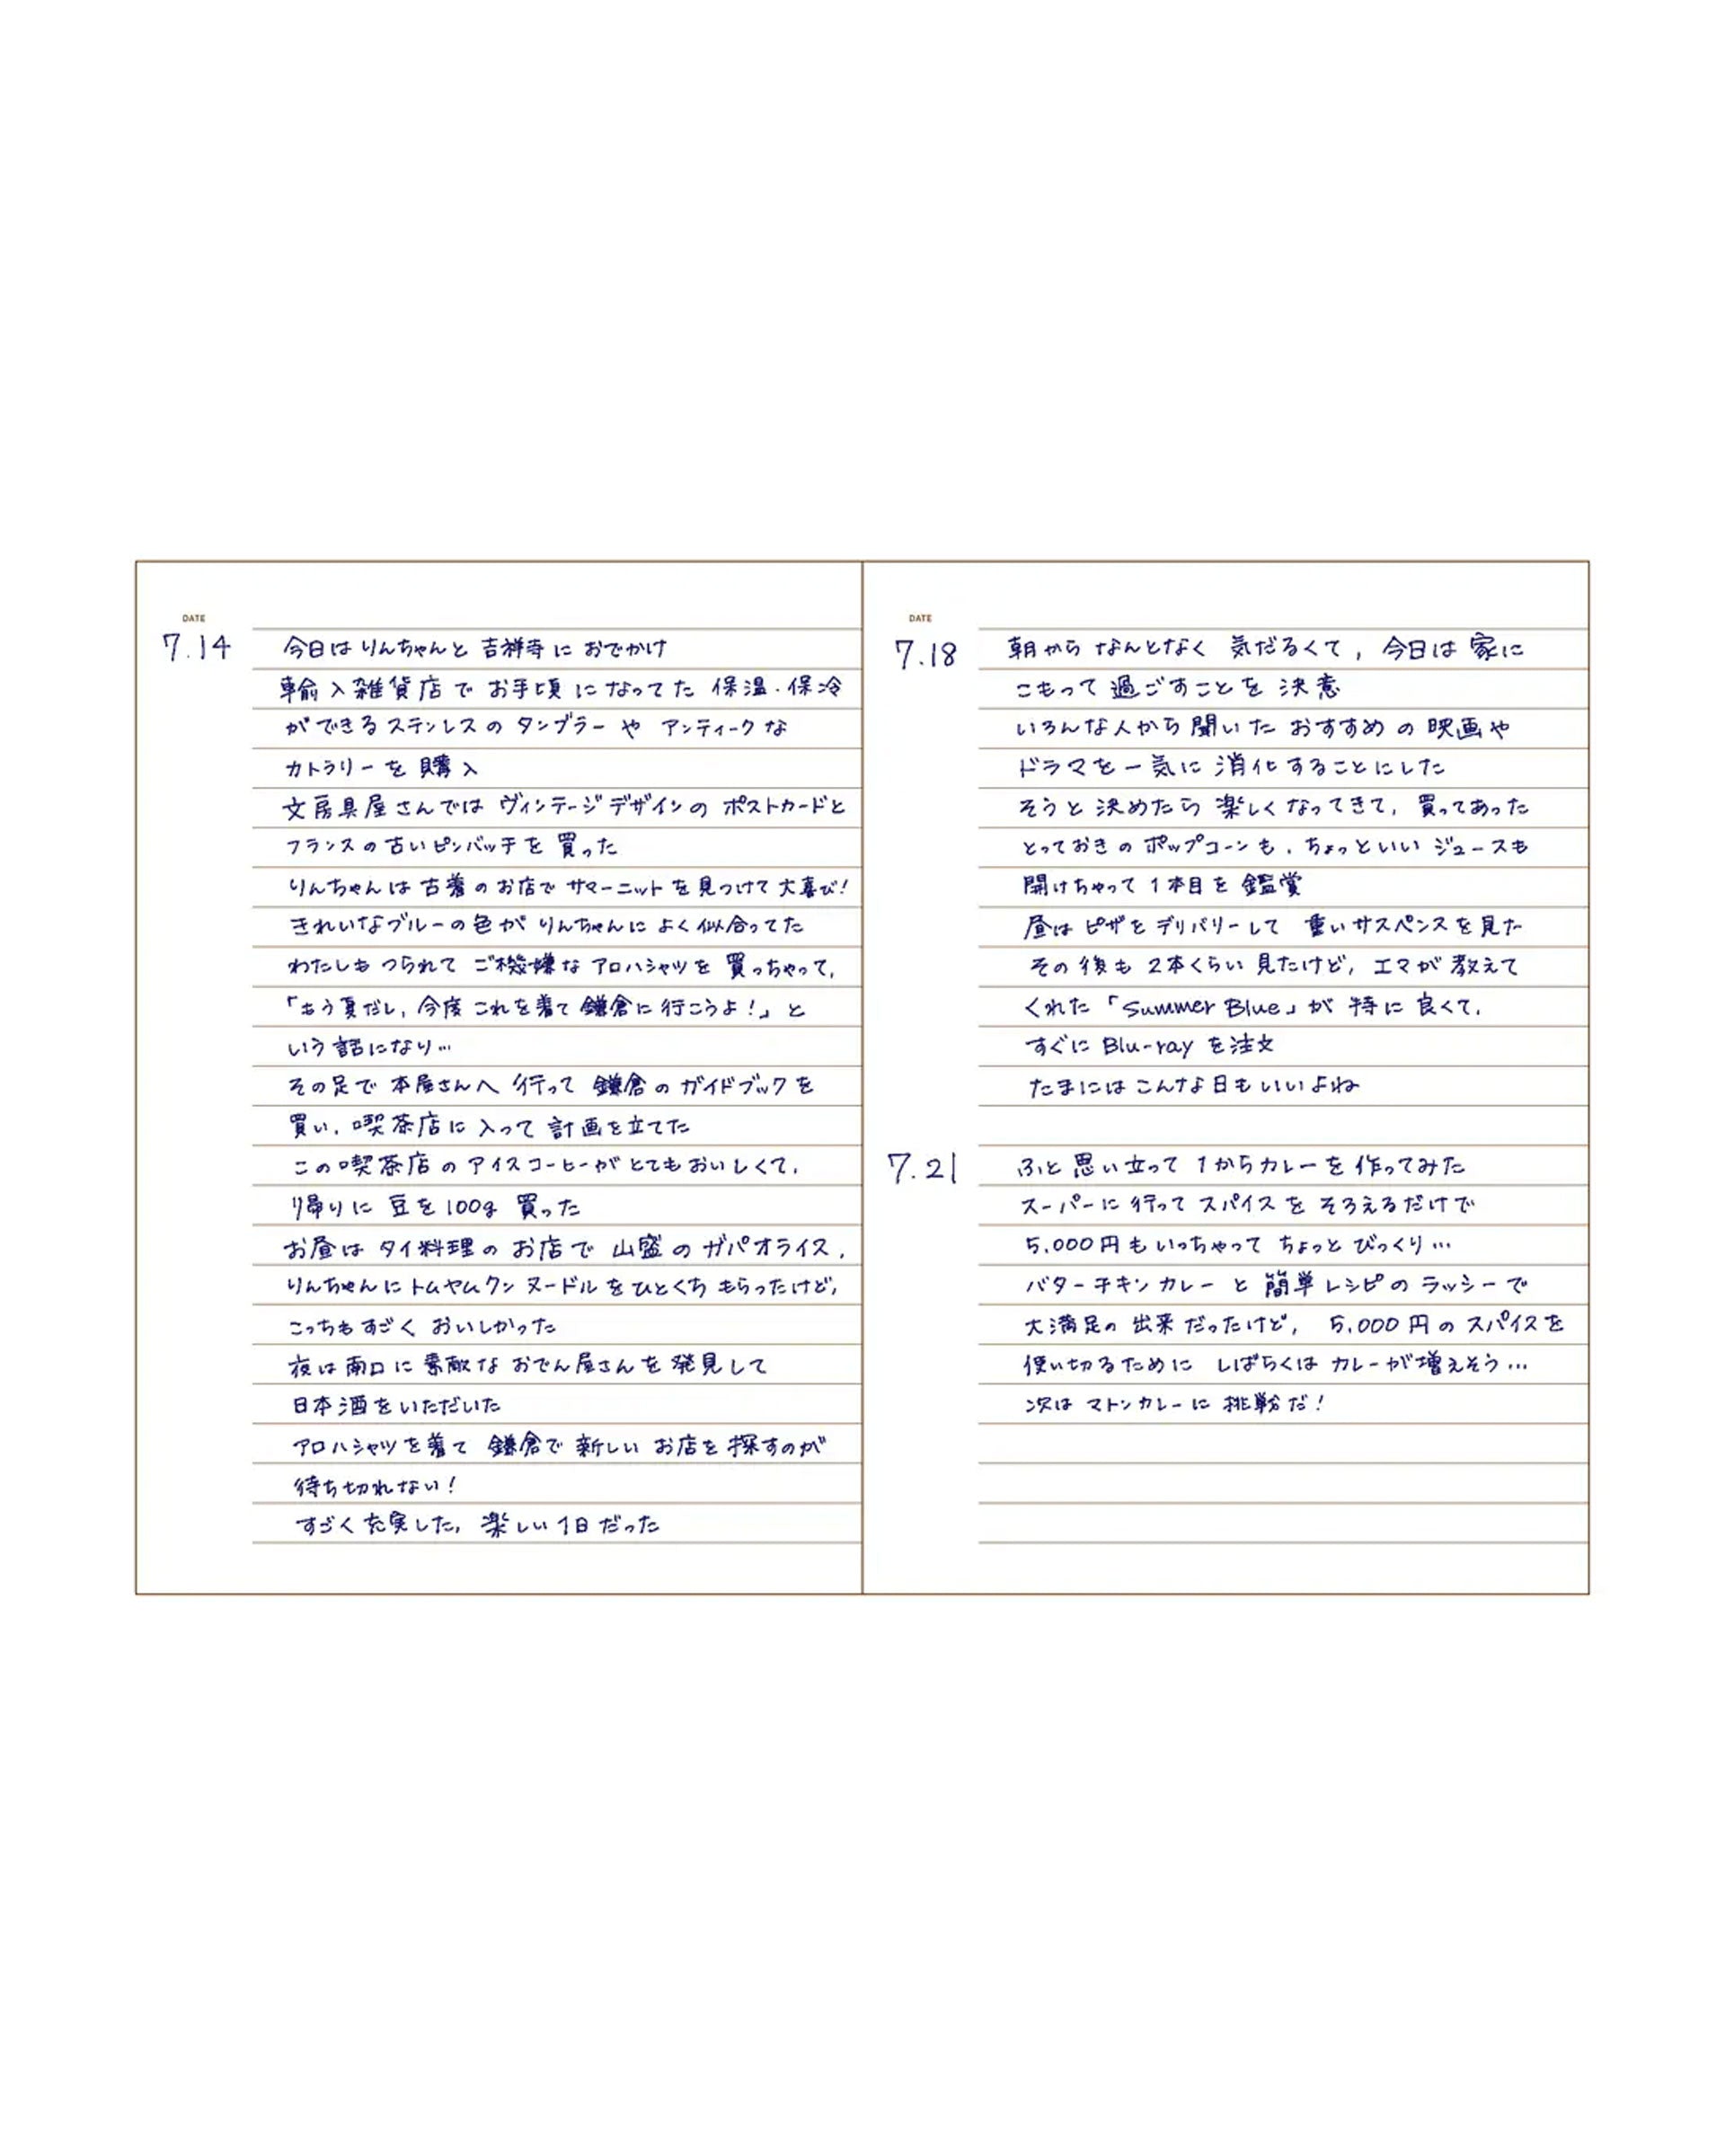 DATE
7.14
今日はりんちゃんと 吉祥寺に おでかけ
輸入雑貨店で お手頃になってた 保温・保冷
ができるステンレスの タンブラーや アンティークな
カトラリーを 購入
文房具屋さんでは ヴィンテージデザインの ポストカードと
フランスの古いピンバッチを 買った
りんちゃんは 古着のお店で サマーニットを見つけて大喜び!
きれいなブルーの色が りんちゃんに よく似合ってた
わたしも つられて ご機嫌な アロハシャツを 買っちゃって,
「もう夏だし, 今度 これを着て 鎌倉に 行こうよ!」と
いう話になり…
その足で 本屋さんへ 行って 鎌倉の ガイドブックを
買い, 喫茶店に 入って 計画を立てた
この喫茶店の アイスコーヒーが とてもおいしくて,
帰りに 豆を100g 買った
お昼は タイ料理の お店で 山盛の ガパオライス,
りんちゃんに トムヤムクン ヌードルを ひとくち もらったけど,
こっちも すごく おいしかった
夜は南口に 素敵な おでん屋さんを 発見して
日本酒を いただいた
アロハシャツを着て 鎌倉で 新しい お店を 探すのが
待ち切れない!
すごく充実した, 楽しい1日だった
DATE
7.18
朝から なんとなく 気だるくて, 今日は 家に
こもって 過ごすことを 決意
いろんな人から 聞いた おすすめの 映画や
ドラマを 一気に 消化することにした
そうと 決めたら 楽しくなってきて, 買ってあった
とっておきの ポップコーンも, ちょっといい ジュースも
開けちゃって 1本目を 鑑賞
昼は ピザを デリバリーして 重いサスペンスを見た
その後も 2本くらい 見たけど, エマが 教えて
くれた 「Summer Blue」が 特に 良くて,
すぐに Blu-ray を注文
たまには こんな日も いいよね
7.21
ふと 思い立って 1からカレーを 作ってみた
スーパーに 行って スパイスを そろえるだけで
5,000円も いっちゃって ちょっと びっくり…
バターチキンカレー と 簡単レシピの ラッシーで
大満足の 出来だったけど, 5,000円の スパイスを
使い切るために しばらくは カレーが 増えそう…
次は マトンカレーに 挑戦だ!